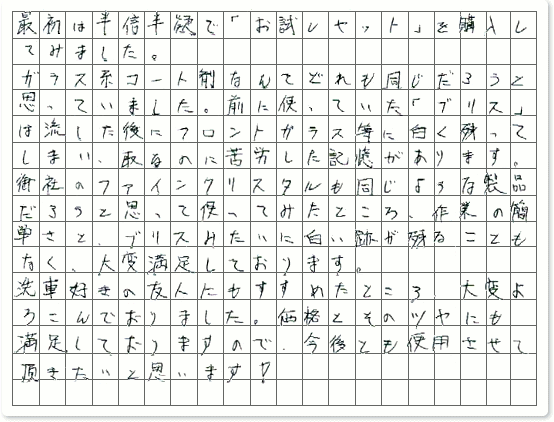 最初は半信半疑で「お試しセット」を購入し
てみました。
ガラス系コート剤なんてどれも同じだろうと
思っていました。前に使っていた「ブリス」
は流した後にフロントガラス等に白く残って
しまい、取るのに苦労した記憶があります。
御社のファインクリスタルも同じような製品
だろうと思って使ってみたところ、作業の簡
単さと、ブリスみたいに白い跡が残ることも
なく、大変満足しております。
洗車好きの友人にもすすめたところ、大変よ
ろこんでおりました。価格とそのツヤにも
満足しておりますので、今後とも使用させて
頂きたいと思います!